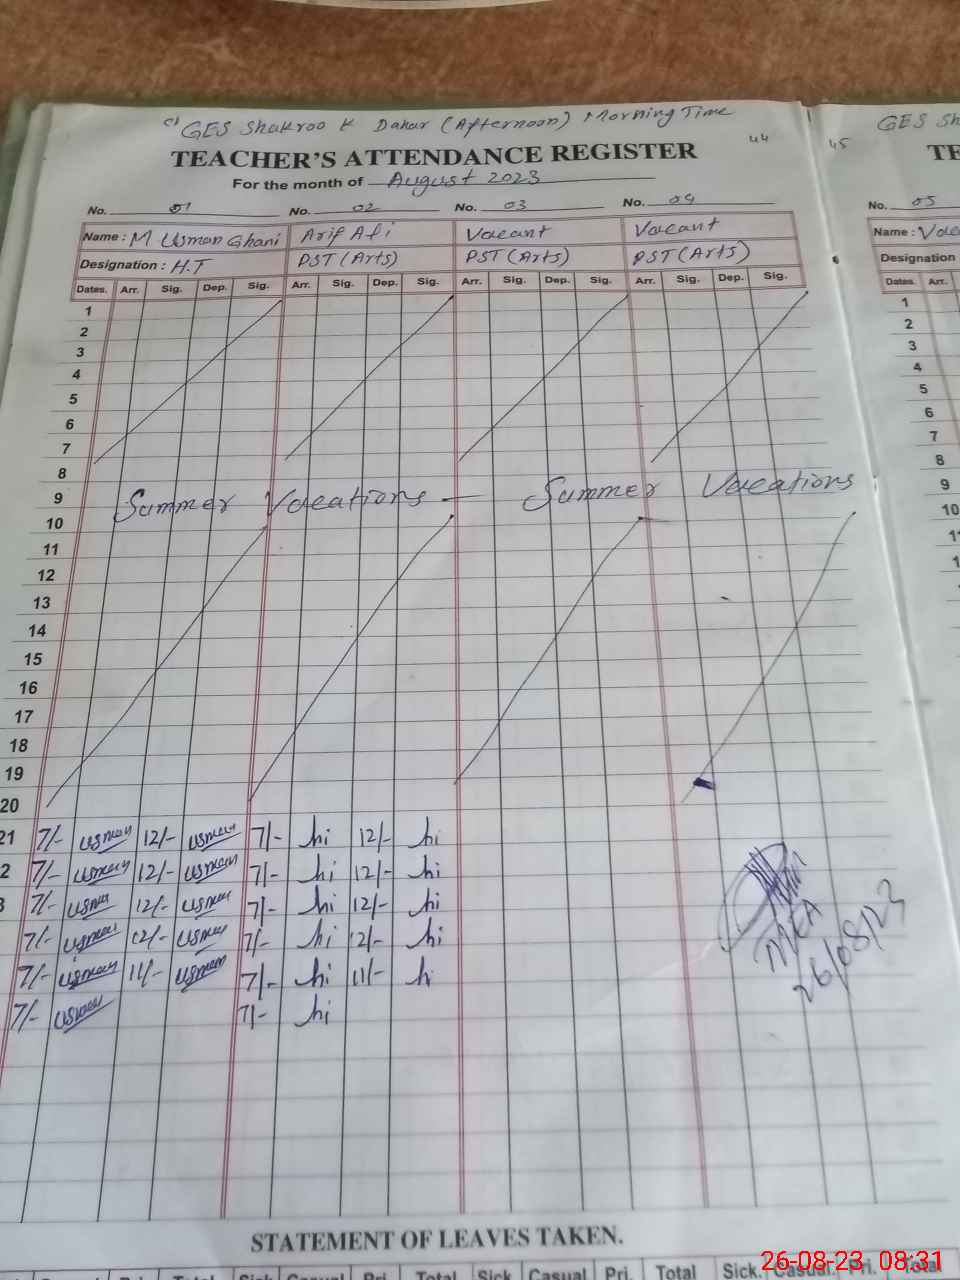 GES Shakroo K Dahar (Afternoon) Morning Time
44
TEACHER'S ATTENDANCE REGISTER
For the month of August 2023
No. 01 No. 02 No. 03 No. 04
Name : M Usman Ghani Arif Ali Vacant Vacant
Designation : H.T PST (Arts) PST (Arts) PST (Arts)
Dates. Arr. Sig. Dep. Sig. Arr. Sig. Dep. Sig. Arr. Sig. Dep. Sig. Arr. Sig. Dep. Sig.
1
2
3
4
5
6
7
8
9 Summer Vacations — Summer Vacations
10
11
12
13
14
15
16
17
18
19
20
21 7/- usman 12/- usman 7/- 12/-
2 7/- usman 12/- usman 7/- 12/-
3 7/- usman 12/- usman 7/- 12/-
7/- usman 12/- usman 7/- 12/-
7/- usman 11/- usman 7/- 11/-
7/- usman 7/-
MEA
26/08/23
STATEMENT OF LEAVES TAKEN.
Total Sick Casual Pri. Total Sick Casual Pri. Total Sick. Casual. Pri. Total
45
GES Sh
TE
No. 05
Name : Vac
Designation
Dates. Arr.
1
2
3
4
5
6
7
8
9
10
11
26-08-23 08:31